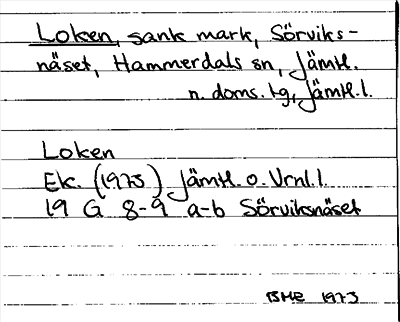 Loken, sank mark, Sörviks-
näset, Hammerdals sn, Jämtl.
n. doms. tg, Jämtl. l.
Loken
Ek. (1973) Jämtl. o. Vrnl. l.
19 G 8-9 a-b Sörviksnäset
BME 1973